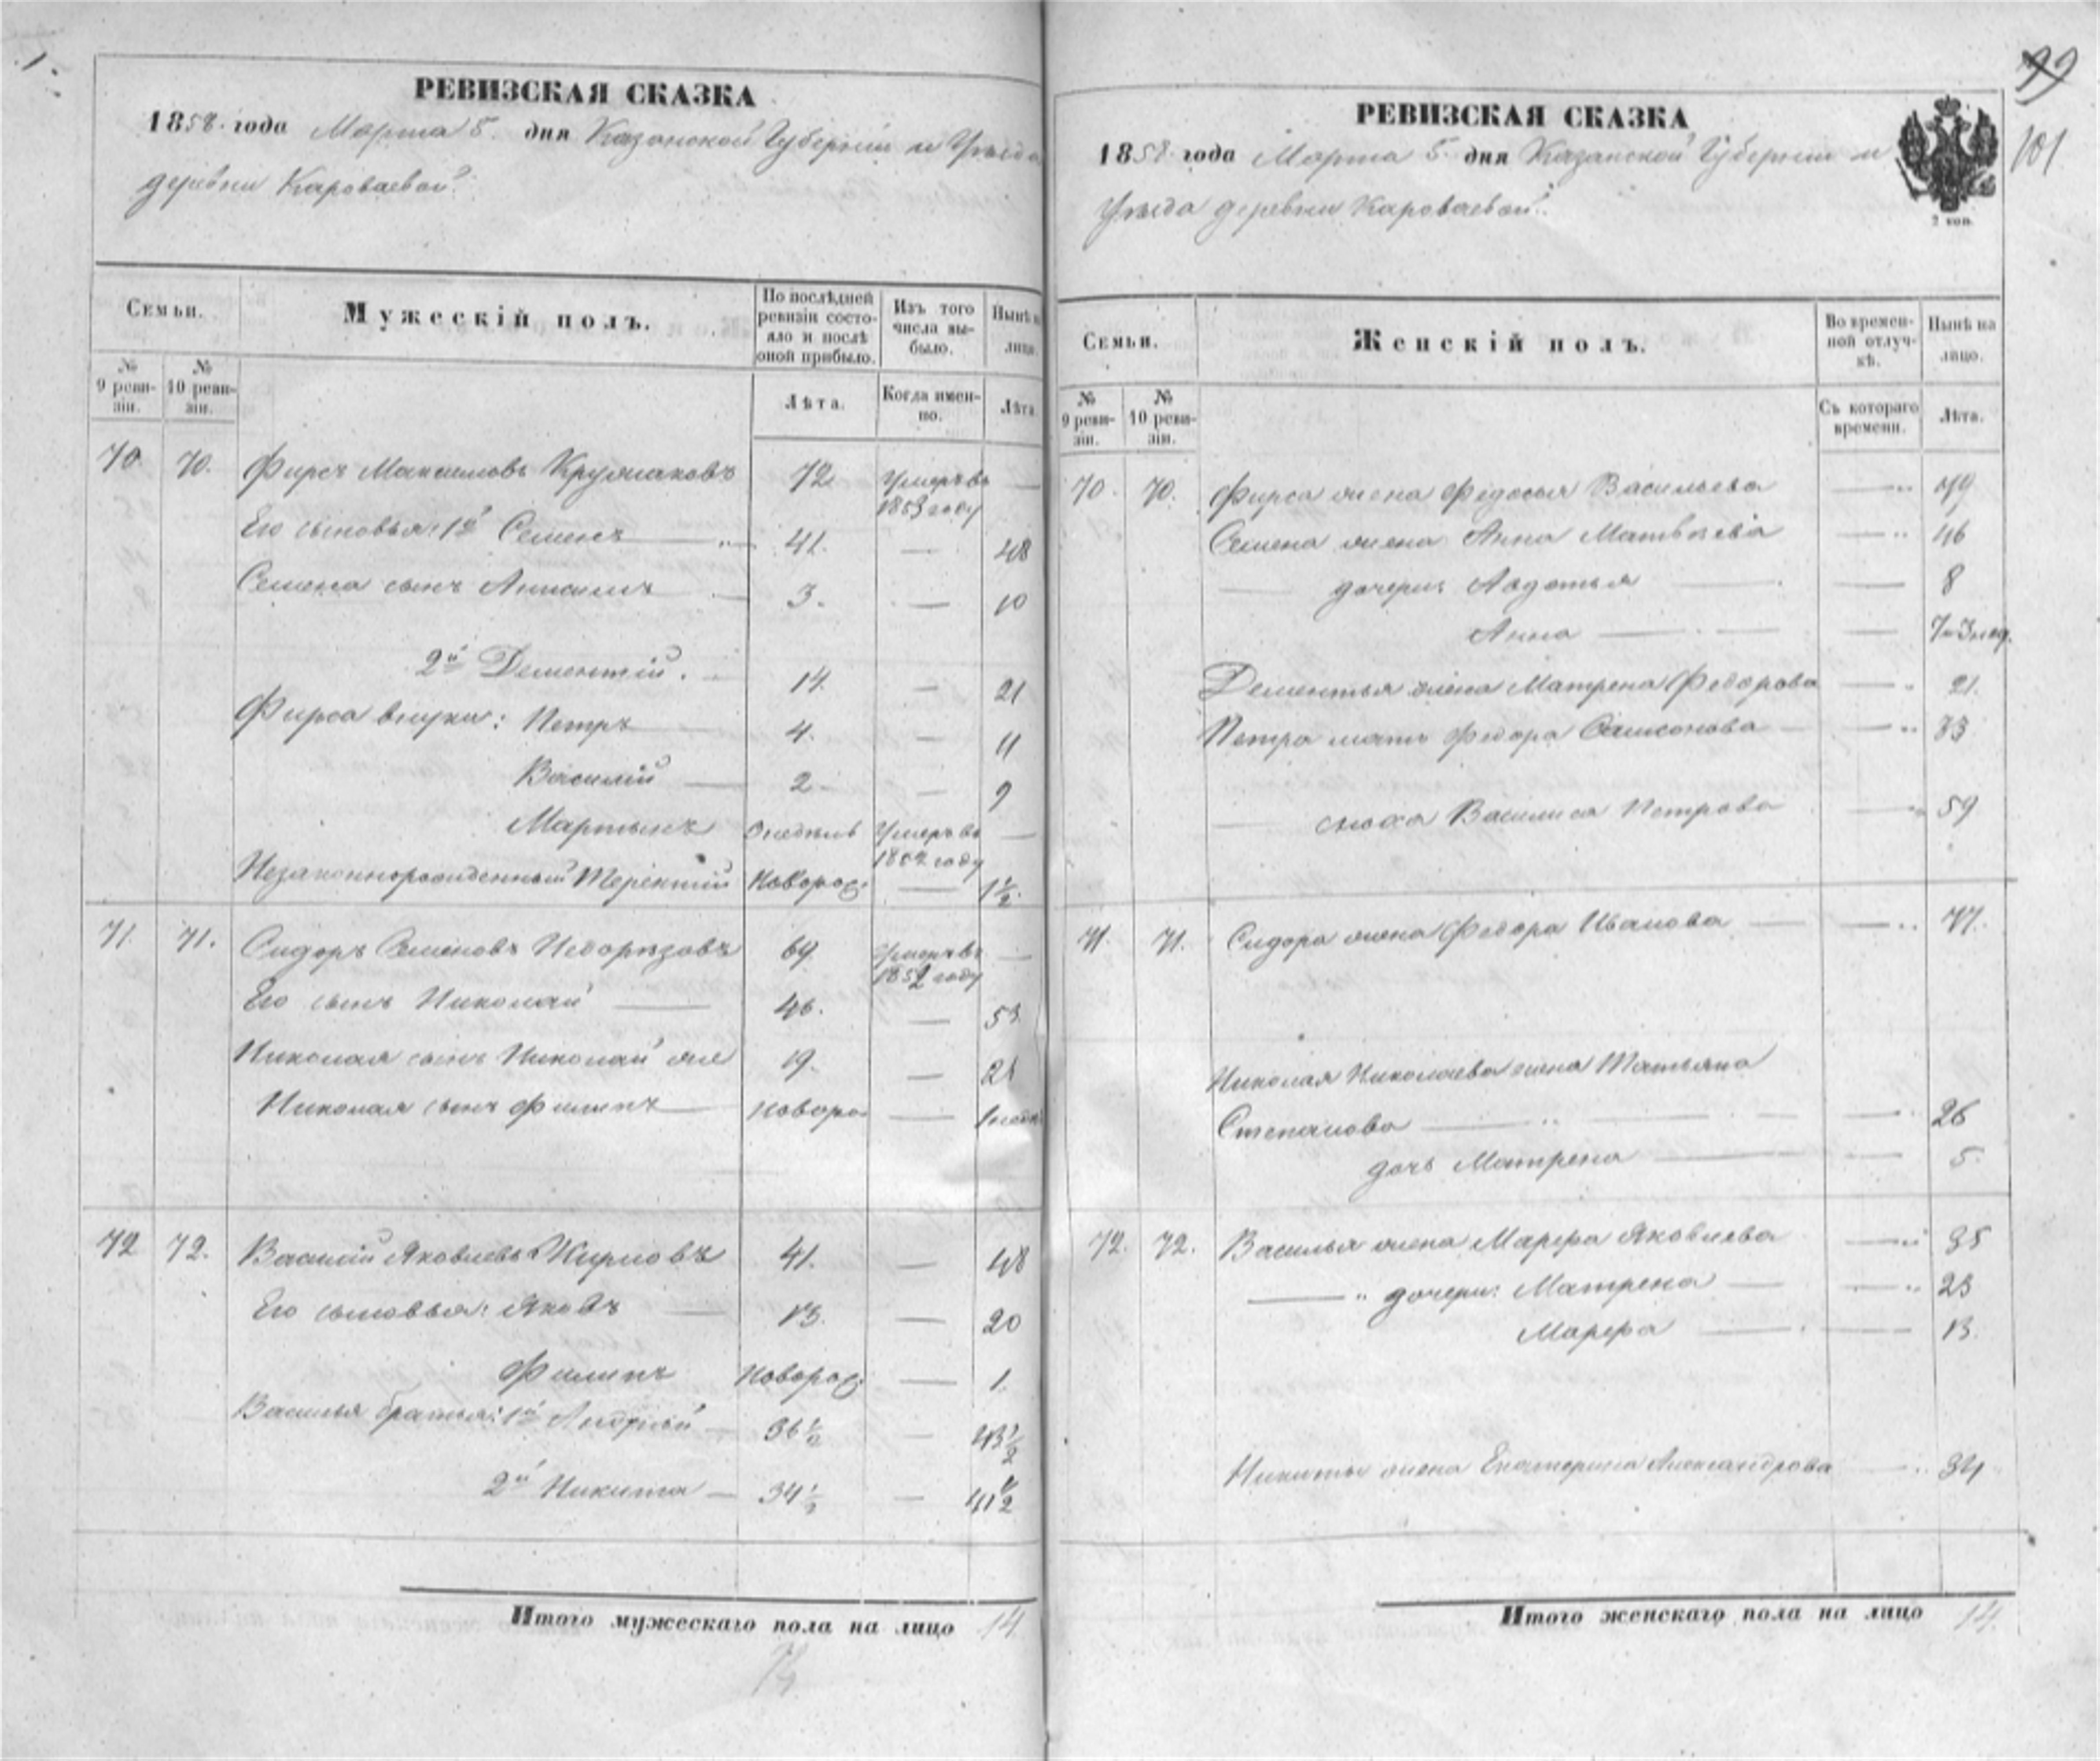 РЕВИЗСКАЯ СКАЗКА
1858 года Марта 5. дня Казанской Губернии и Уѣзда
деревни Кароваевой.
Семьи.
Мужескій полъ.
По послѣдней ревизіи состояло и послѣ оной прибыло.
Изъ того числа выбыло.
Нынѣ на лицо.
№ 9 ревизіи.
№ 10 ревизіи.
Лѣта.
Когда именно.
Лѣта.
70. 70. Фирсъ Максимовъ 72. Умеръ въ 1853 году —
Его сыновья: 1й Семенъ — 41. — 48
Семена сынъ 3. — 10
2й Дементій. 14. — 21
Фирса внуки: Петръ — 4. — 11
Василій — 2 — 9
Мартынъ Умеръ въ 1852 году —
Незаконнорожденный Терентій Новорож: — 1½.
71. 71. Сидоръ Семеновъ Недорѣзовъ 69. Умеръ въ 1852 году —
Его сынъ Николай — 46. — 53.
Николая сынъ Николай же 19. —
Николая сынъ Филипъ — новоро —
72 72. Василій Яковлевъ Жирновъ 41. — 48
Его сыновья: Яковъ — 13. — 20
Филипъ Новорож: — 1.
Василья братья: 1й Андрей — 36½ — 43½
2й Никита — 34½ — 41½
Итого мужескаго пола на лицо 14
99
101
РЕВИЗСКАЯ СКАЗКА
1858 года Марта 5. дня Казанской Губернии и
Уѣзда деревни Кароваевой.
2 коп.
Семьи.
Женскій полъ.
Во временной отлучкѣ.
Нынѣ на лицо.
№ 9 ревизіи.
№ 10 ревизіи.
Съ котораго времени.
Лѣта.
70. 70. Фирса жена Федосья Васильева —
Семена жена Анна Матвѣева — 46
— дочери: Авдотья — — 8
Анна — —
Дементья жена Матрена Федорова — 21.
Петра мать Федора Самсонова —
— сноха Василиса Петрова — 59
71. 71. Сидора жена Федора Иванова — — 77.
Николая Николаева жена Татьяна
Степанова — — 26
дочь Матрена — — 5.
72. 72. Василья жена Марфа Яковлева — 35
— " дочери: Матрена — — 23
Марфа — — 13.
Никиты жена Екатерина Александрова — 34
Итого женскаго пола на лицо 14.